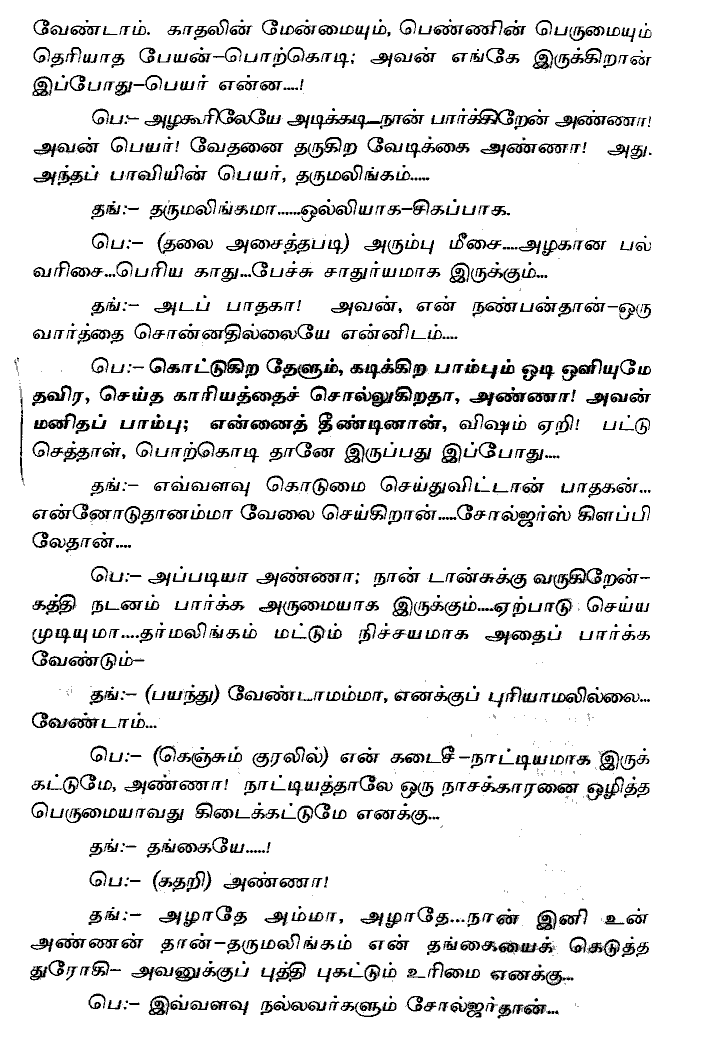 வேண்டாம். காதலின் மேன்மையும், பெண்ணின் பெருமையும்
தெரியாத பேயன்—பொற்கொடி; அவன் எங்கே இருக்கிறான்
இப்போது—பெயர் என்ன....!
பெ:— அழகூரிலேயே அடிக்கடி—நான் பார்க்கிறேன் அண்ணா!
அவன் பெயர்! வேதனை தருகிற வேடிக்கை அண்ணா! அது.
அந்தப் பாவியின் பெயர், தருமலிங்கம்.....
தங்:— தருமலிங்கமா......ஒல்லியாக—சிகப்பாக.
பெ:— (தலை அசைத்தபடி) அரும்பு மீசை....அழகான பல்
வரிசை...பெரிய காது...பேச்சு சாதுர்யமாக இருக்கும்...
தங்:— அடப் பாதகா! அவன், என் நண்பன்தான்—ஒரு
வார்த்தை சொன்னதில்லையே என்னிடம்....
பெ:— கொட்டுகிற தேளும், கடிக்கிற பாம்பும் ஓடி ஒளியுமே
தவிர, செய்த காரியத்தைச் சொல்லுகிறதா, அண்ணா! அவன்
மனிதப் பாம்பு; என்னைத் தீண்டினான், விஷம் ஏறி! பட்டு
செத்தாள், பொற்கொடி தானே இருப்பது இப்போது....
தங்:— எவ்வளவு கொடுமை செய்துவிட்டான் பாதகன்...
என்னோடுதானம்மா வேலை செய்கிறான்.....சோல்ஜர்ஸ் கிளப்பி
லேதான்....
பெ:— அப்படியா அண்ணா; நான் டான்சுக்கு வருகிறேன்—
கத்தி நடனம் பார்க்க அருமையாக இருக்கும்....ஏற்பாடு செய்ய
முடியுமா....தர்மலிங்கம் மட்டும் நிச்சயமாக அதைப் பார்க்க
வேண்டும்—
தங்:— (பயந்து) வேண்டாமம்மா, எனக்குப் புரியாமலில்லை...
வேண்டாம்...
பெ:— (கெஞ்சும் குரலில்) என் கடைசீ—நாட்டியமாக இருக்
கட்டுமே, அண்ணா! நாட்டியத்தாலே ஒரு நாசக்காரனை ஒழித்த
பெருமையாவது கிடைக்கட்டுமே எனக்கு...
தங்:— தங்கையே.....!
பெ:— (கதறி) அண்ணா!
தங்:— அழாதே அம்மா, அழாதே...நான் இனி உன்
அண்ணன் தான்—தருமலிங்கம் என் தங்கையைக் கெடுத்த
துரோகி— அவனுக்குப் புத்தி புகட்டும் உரிமை எனக்கு...
பெ:— இவ்வளவு நல்லவர்களும் சோல்ஜர்தான்...